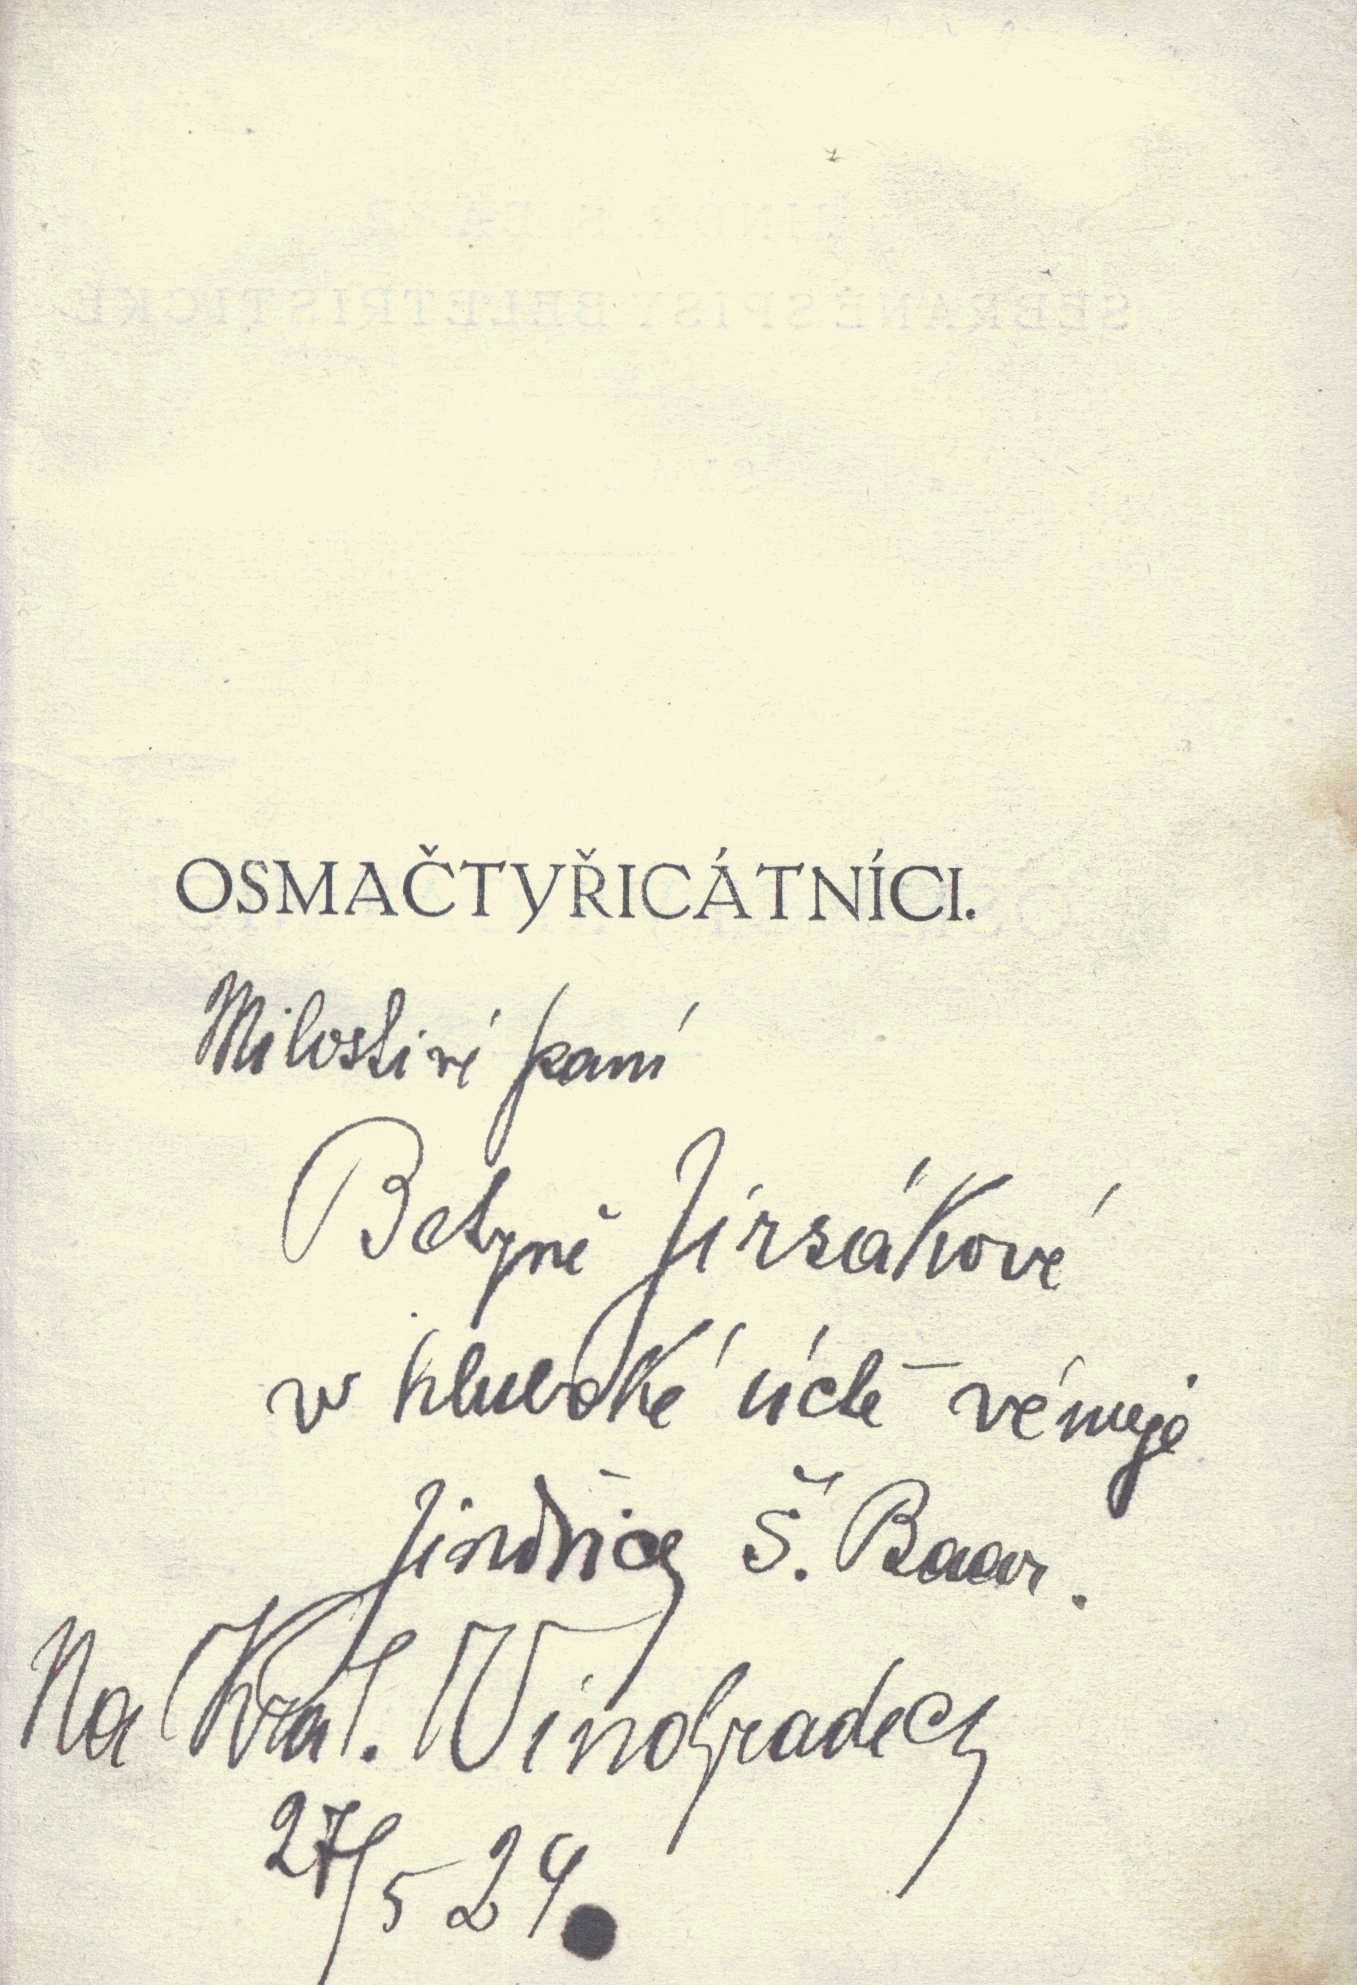 OSMAČTYŘICÁTNÍCI.
Milostivé paní
Betyně Jirsákové
w hluboké úctě věnuje
Jindřich Š. Baar.
Na Král. Vinohradech
27/5 24.